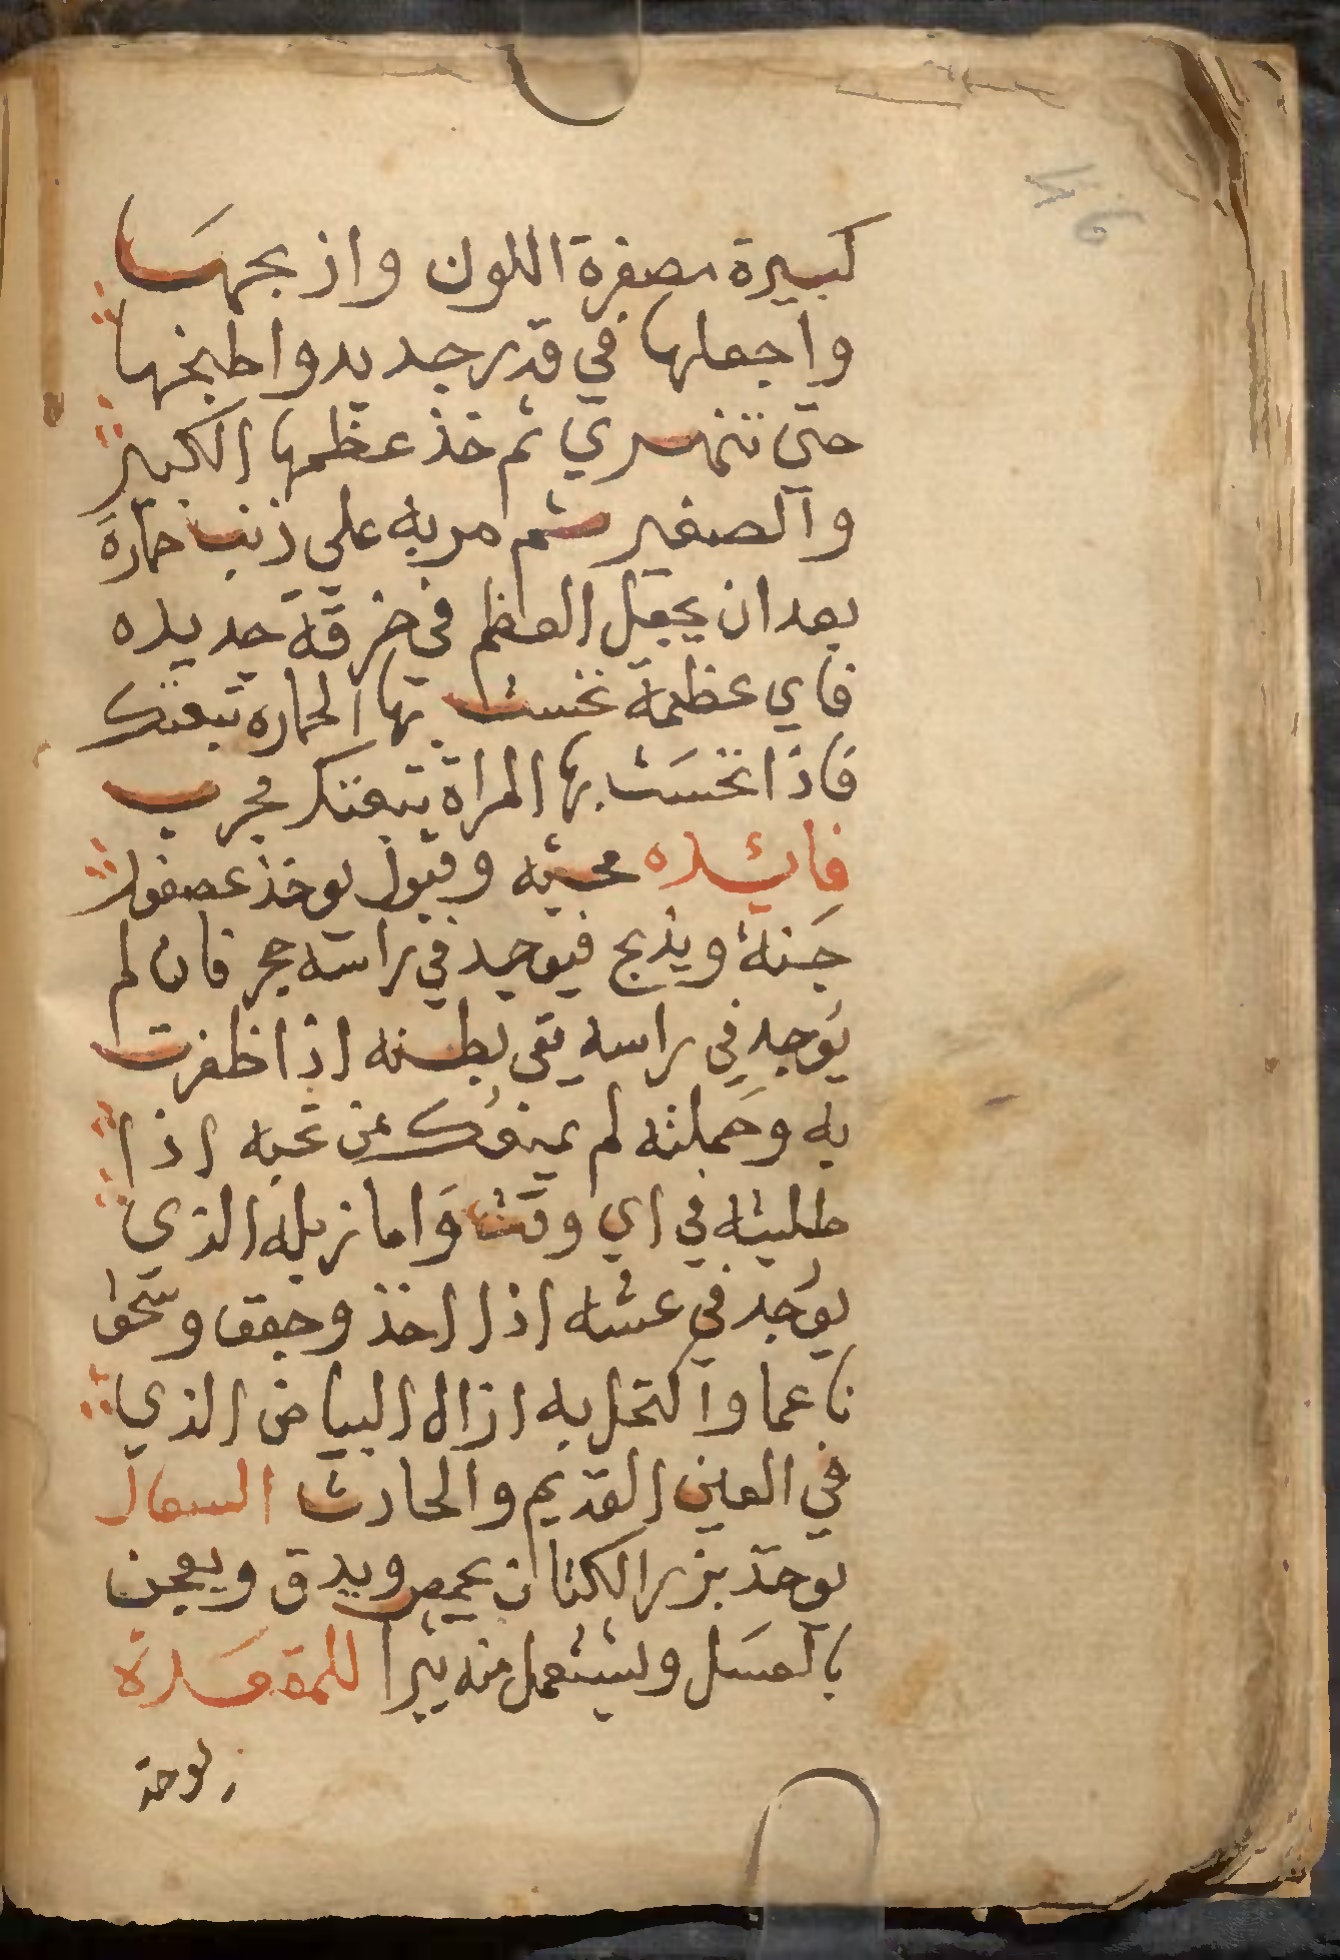 كبيرة مصفرة اللون واذبحها
واجعلها في قدر جديد واطبخها
حتى تنهري ثم خذ عظمها الكبير
والصغير ثم مر به على ذنب حمارة
بعد ان يجعل العظم في خرقة جديده
فاي عظمة نخست بها الحماره تبعتك
فاذا نخست بها المراة تتبعتك مجرب
فائده محبه وقبول يوخذ عصفور
جنة ويذبح فيوجد في راسه حجر فان لم
يوجد في راسه بقى بطنه اذا ظفرت
به وحملته لم يعوقك من تحبه اذا
طلبته في اي وقت واما زبله الذي
يوجد في عشه اذا اخذ وجفف وسحق
ناعما واكتحل به ازال البياض الذي
في العين القديم والحادث السعال
يوخذ بزر الكتان يحمص ويدق ويعجن
بالعسل ويستعمل منه يبرا للمقعدة
يوخذ